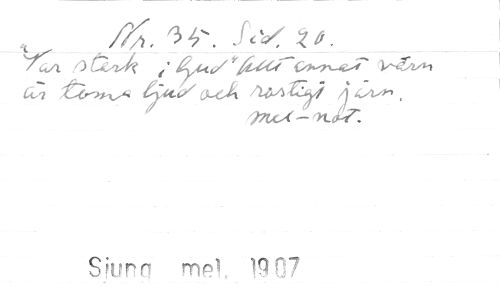 Nr. 35. Sid. 20.
"Var stark i ljud" Allt annat värn
är toma ljud och rostigt järn.
mel-not.
Sjung mel. 1907